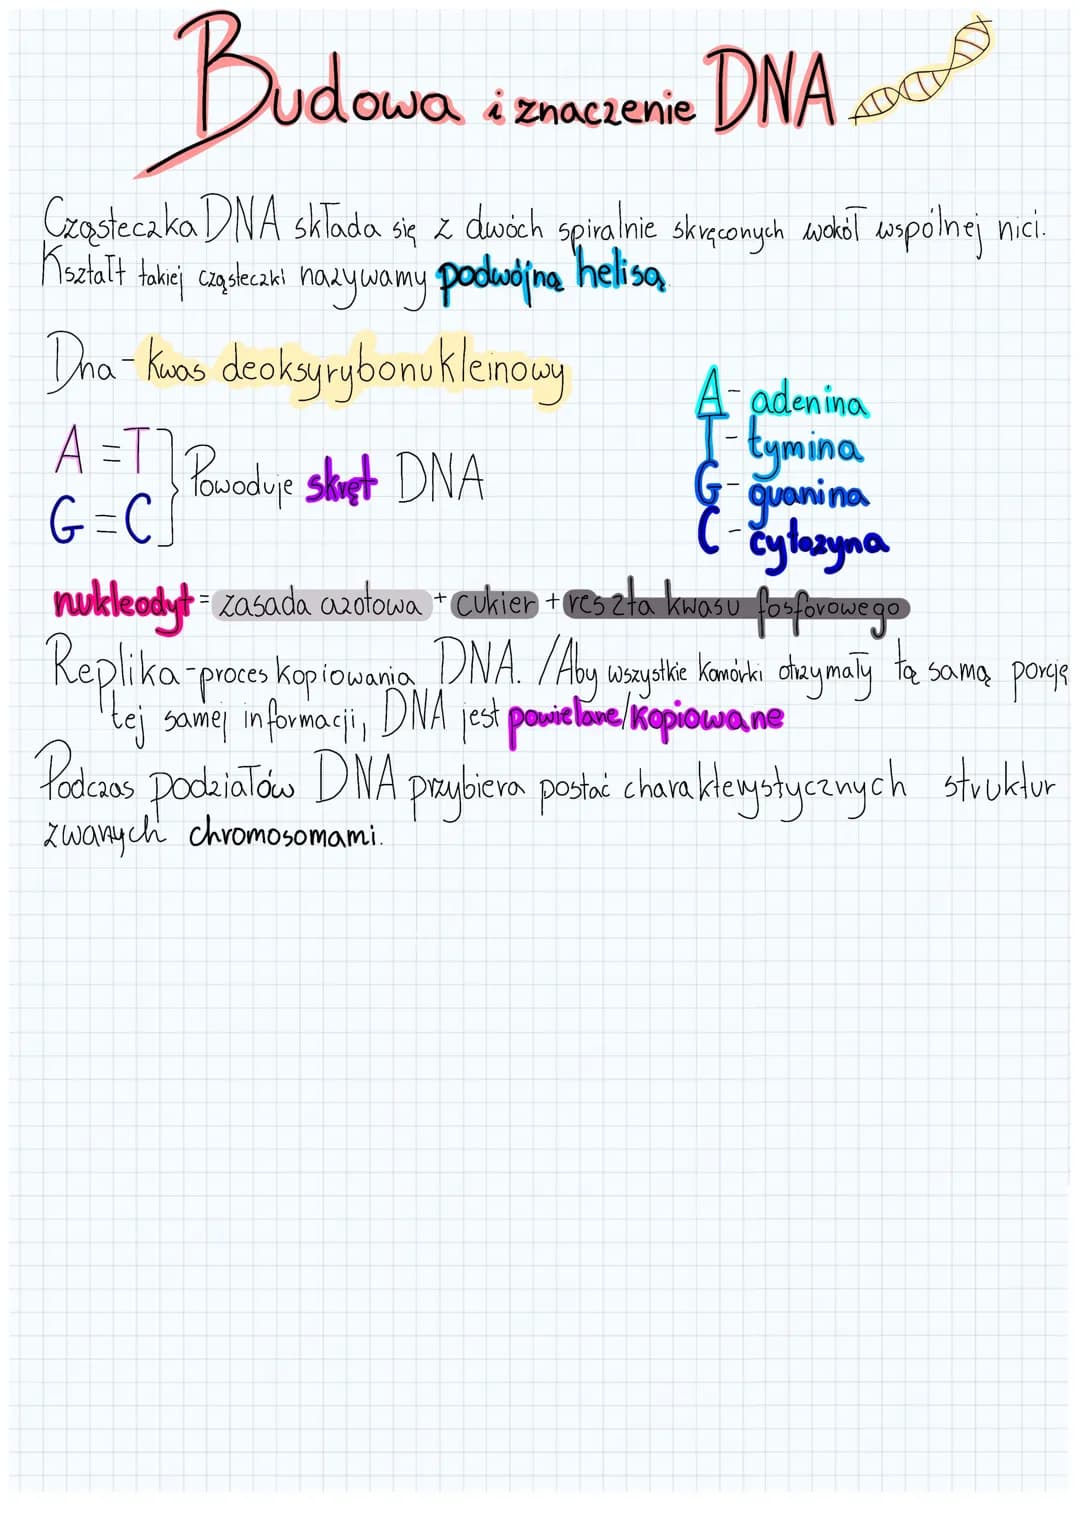 Budowa i znaczenie DNA
Cząsteczka DNA składa się z dwóch spiralnie skręconych wokół wspólnej nici.
Kształt takiej cząsteczki nazywamy podwójną helisą.
Dna - kwas deoksyrybonukleinowy
A = T
G ≡ C
Powoduje skręt DNA
A - adenina
T - tymina
G - guanina
C - cytozyna
nukleodyt = zasada azotowa + cukier + reszta kwasu fosforowego
Replika - proces kopiowania DNA. / Aby wszystkie komórki otrzymały tą samą porcję
tej samej informacji, DNA jest powielane/kopiowane
Podczas podziałów DNA przybiera postać charakterystycznych struktur
zwanych chromosomami.